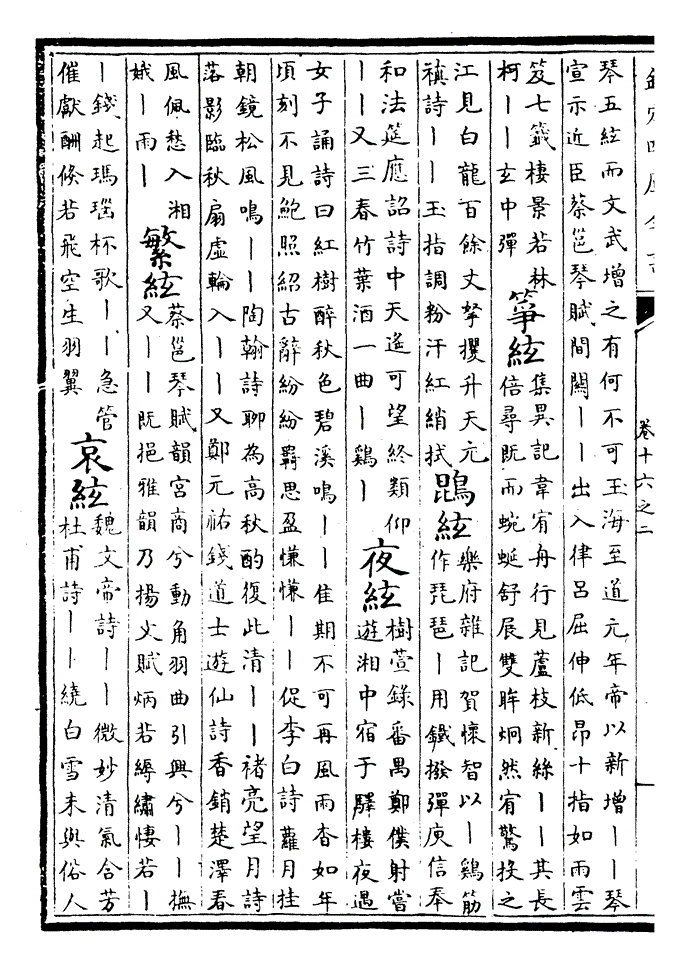 欽定四庫全書
卷十六之二
琴五絃而文武增之有何不可玉海至道元年帝以新增丨丨琴
宣示近臣蔡邕琴賦間關丨丨出入律呂屈伸低昂十指如雨雲
笈七籤棲景若林
柯丨丨玄中彈
箏絃
集異記韋宥舟行見蘆枝新絲丨丨其長
倍尋既而蜿蜒舒展雙眸炯然宥驚投之
江見白龍百餘丈拏攫升天元
稹詩丨丨玉指調粉汗紅綃拭
鵾絃
樂府雜記賀懷智以丨雞筋
作琵琶丨用鐵撥彈庾信奉
和法筵應詔詩中天遙可望終類仰
丨丨又三春竹葉酒一曲丨雞丨
夜絃
樹萱錄番禺鄭僕射嘗
遊湘中宿于驛樓夜遇
女子誦詩曰紅樹醉秋色碧溪鳴丨丨佳期不可再風雨杳如年
頃刻不見鮑照紹古辭紛紛羇思盈慊慊丨丨促李白詩蘿月挂
朝鏡松風鳴丨丨陶翰詩聊為高秋酌復此清丨丨褚亮望月詩
落影臨秋扇虛輪入丨丨又鄭元祐錢道士遊仙詩香銷楚澤春
風佩愁入湘
娥丨雨丨
繁絃
蔡邕琴賦韻宮商兮動角羽曲引興兮丨丨撫
又丨丨既挹雅韻乃揚文賦炳若縟繡悽若丨
丨錢起瑪瑙杯歌丨丨急管
催獻酬倏若飛空生羽翼
哀絃
魏文帝詩丨丨微妙清氣含芳
杜甫詩丨丨繞白雪未與俗人